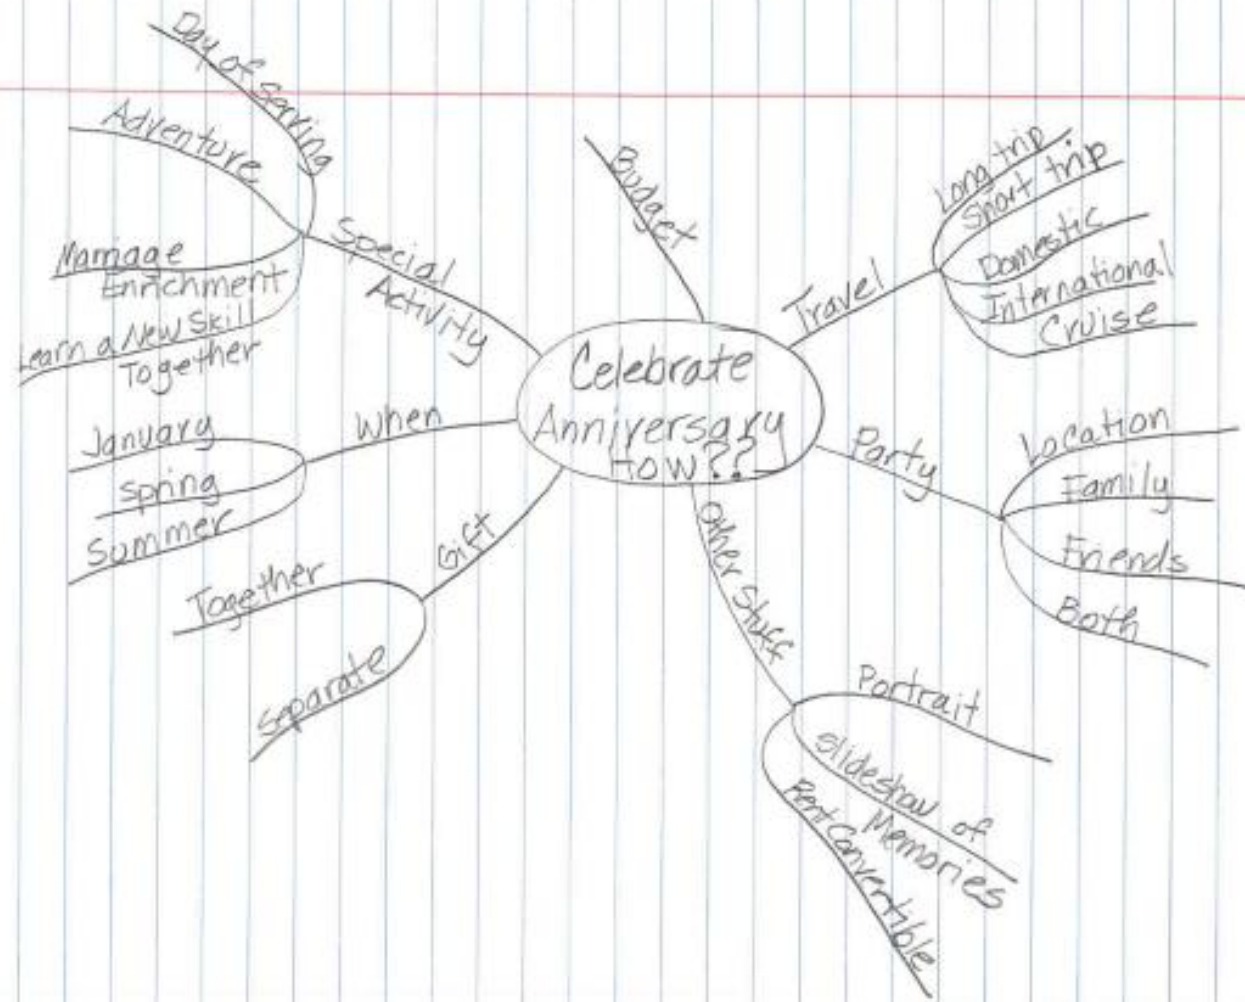 Celebrate
Anniversary
How??
Budget
Travel
Long trip
Short trip
Domestic
International
Cruise
Party
Location
Family
Friends
Both
Other Stuff
Portrait
Slideshow of
Memories
Rent Convertible
Gift
Together
Separate
When
January
Spring
Summer
Special
Activity
Day of Serving
Adventure
Marriage
Enrichment
Learn a New Skill
Together